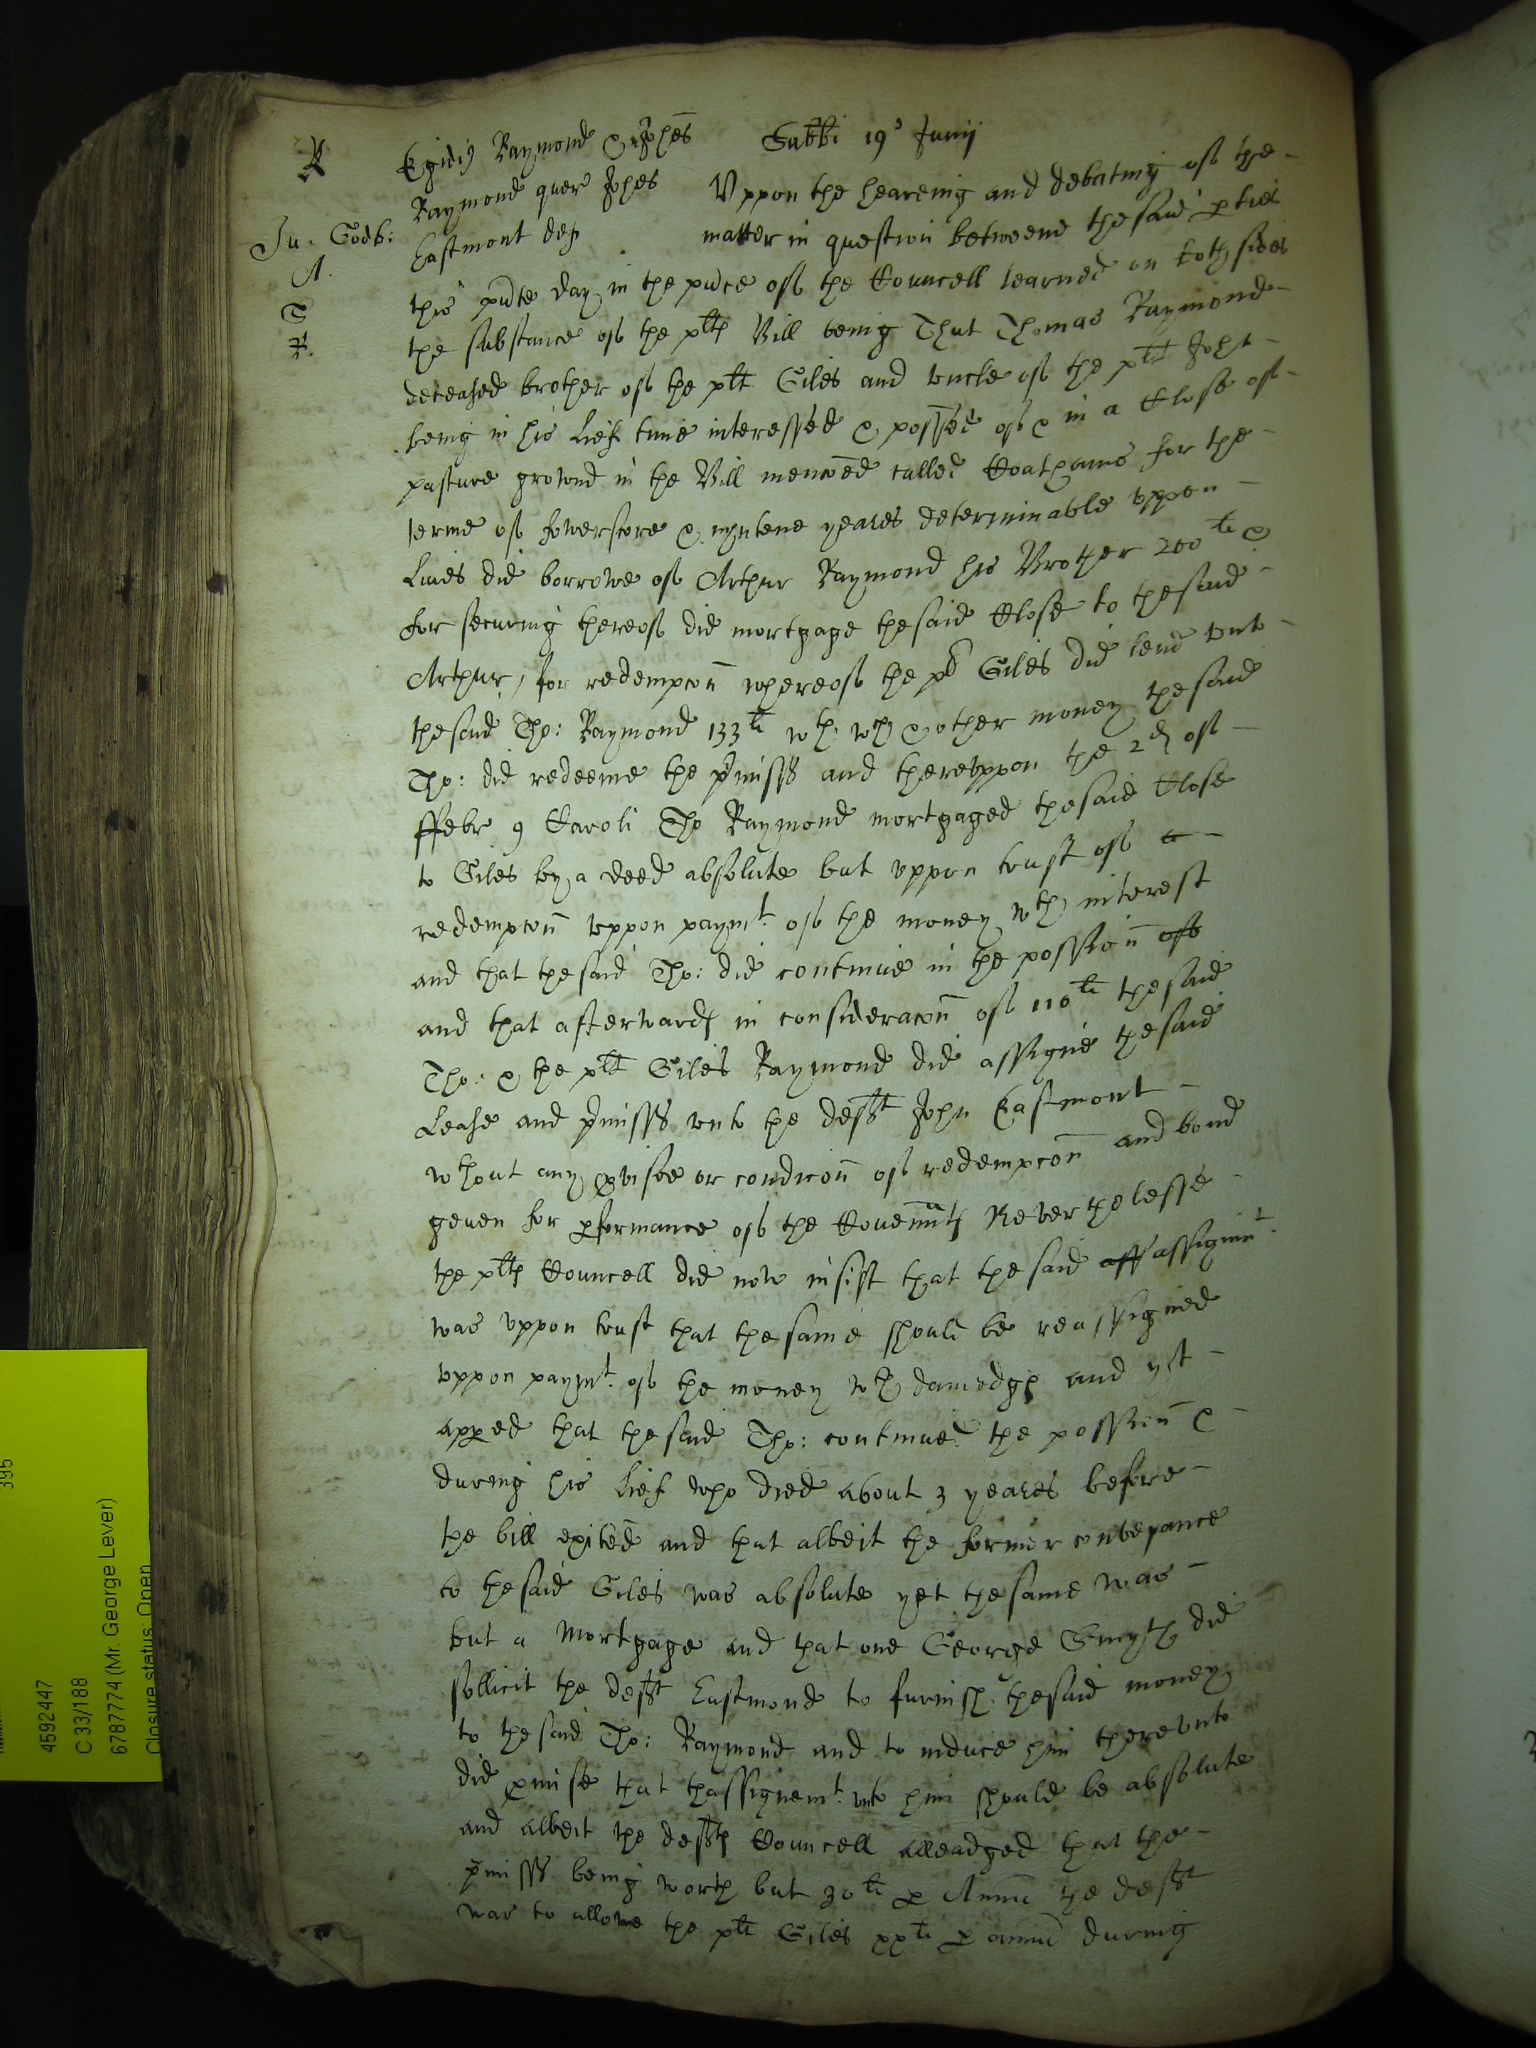 R
Egidiꝰ Raymond & Johēs
Raymond quer Johes
Eastmont def
Ju. Godb:
A.
S
F.
Sabbi 19º Junij
Vppon the heareing and debating of the
matter in question betweene the said ꝑties
this p̄nte day in the p̄nce of the Councell learned on both sides
the substance of the plts Bill being That Thomas Raymond
deceased brother of the plt Giles and vncle of the plt John
being in his lief time interessed & possed of & in a Close of
pasture grownd in the Bill menc̄oned called for the
terme of fowerscore & nyntene yeares determinable vppon
liues did borrowe of Arthur Raymond his Brother 200li &
for secureing thereof did mortgage the said Close to the said
Arthur, for redempcōn whereof the pl Giles did lend vnto
the said Tho: Raymond 133li wth wch & other money the said
Tho: did redeeme the p̄misss and therevppon the 2d of
ffebr 9 Caroli Tho Raymond mortgaged the said Close
to Giles by a deed absolute but vppon trust of a
redempcōn vppon paymt. of the money wth interest
and that the said Tho: did continue in the possion̄ of
and that afterwards in consideracōn of 110li the said
Tho: & the plt Giles Raymond did assigne the said
Lease and p̄misss vnto the deft John Eastmont
wthout any ꝓvisoe or condicōn of redempcōn and bond
geuen for ꝑformance of the Couennts Neverthelesse
the plts Councell did now insist that the said ass assignmt.
was vppon trust that the same should be reassigned
vppon paymt. of the money wth damedgs and yt
apꝑed that the said Tho: continued the possion̄ &
during his lief who died about 3 yeares before
the bill exited and that albeit the former conveyance
to the said Giles was absolute yet the same was
but a Mortgage and that one George Smyth did
sollicit the deft Eastmond to furnish the said money
to the said Tho: Raymond and to induce him therevnto
did ꝓmise that thassignemt. vnto him should be absolute
and albeit the defts Councell alleadged that the
p̄misss being worth but 30li ꝑ Annū the deft
was to allowe the plt Giles xxli ꝑ annū during
395
4592447
C 33/188
6787774 (Mr. George Lever)
Closure status: Open